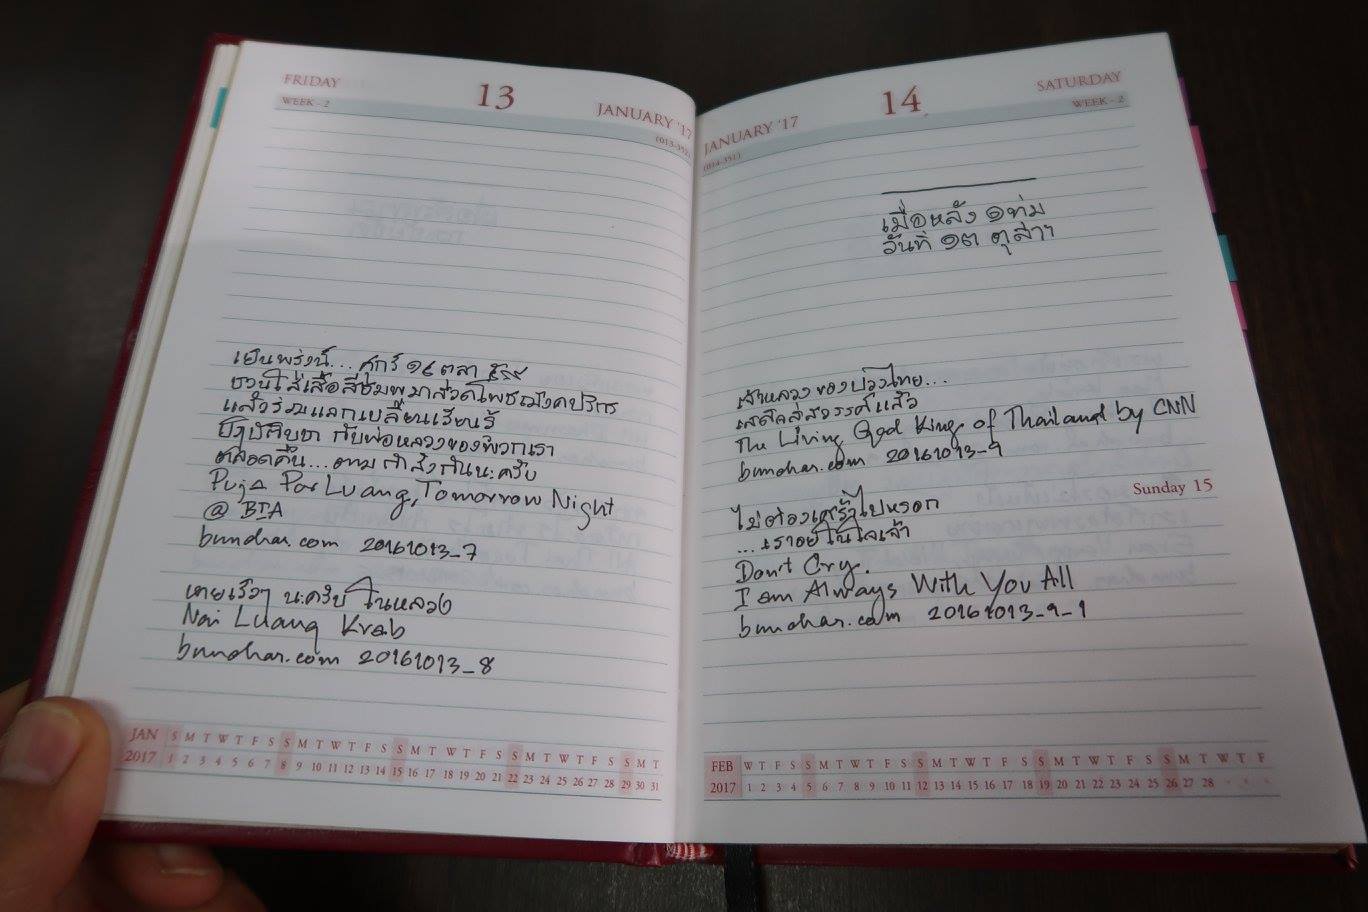 FRIDAY
13
JANUARY '17
WEEK - 2
(013-352)
เย็นพรุ่งนี้... ศุกร์ ๑๔ ตุลา ๕๙
ชวนใส่เสื้อสีชมพูมาสวดโพชฌังคปริตร
แล้วร่วมแลกเปลี่ยนเรียนรู้
ปฏิบัติบูชา กับพ่อหลวงของพวกเรา
ตลอดคืน... ตามกำลังกันนะครับ
Puja Por Luang, Tomorrow Night
@ BIA
bunchar.com 20161013_7
หายเร็วๆ นะครับ ในหลวง
Nai Luang Krab
bunchar.com 20161013_8
JAN S M T W T F S S M T W T F S S M T W T F S S M T W T F S S M T
2017 1 2 3 4 5 6 7 8 9 10 11 12 13 14 15 16 17 18 19 20 21 22 23 24 25 26 27 28 29 30 31
SATURDAY
14
JANUARY '17
WEEK - 2
(014-351)
เมื่อหลัง ๑ทุ่ม
วันที่ ๑๓ ตุลาฯ
เจ้าหลวงของปวงไทย...
เสด็จสู่สวรรค์แล้ว
The Living God King of Thailand by CNN
bunchar.com 20161013_9
Sunday 15
ไม่ต้องเศร้าไปหรอก
...เราอยู่ในใจเจ้า
Don't Cry.
I am Always With You All
bunchar.com 20161013_9_1
FEB W T F S S M T W T F S S M T W T F S S M T W T F S S M T W T F
2017 1 2 3 4 5 6 7 8 9 10 11 12 13 14 15 16 17 18 19 20 21 22 23 24 25 26 27 28